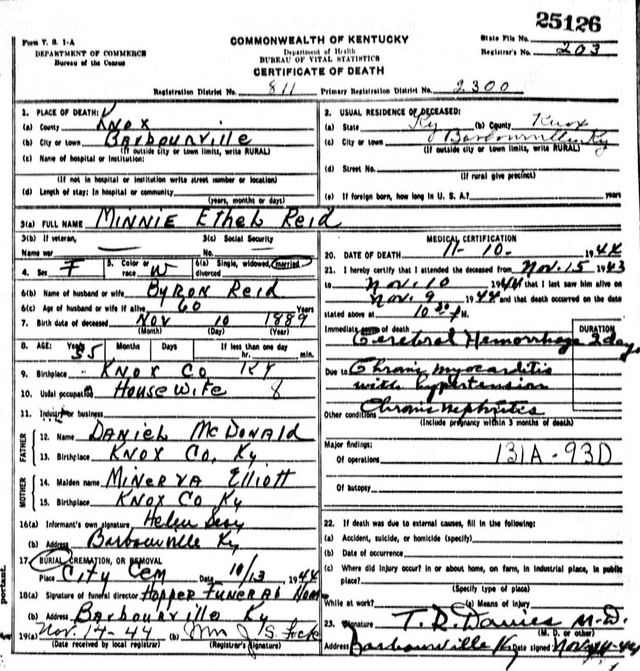 25126
Form V. S. 1-A
DEPARTMENT OF COMMERCE
Bureau of the Census
COMMONWEALTH OF KENTUCKY
Department of Health
BUREAU OF VITAL STATISTICS
CERTIFICATE OF DEATH
State File No.
Registrar's No. 203
Registration District No. 811 Primary Registration District No. 2300
1. PLACE OF DEATH:
(a) County Knox
(b) City or town Barbourville
(If outside city or town limits, write RURAL)
(c) Name of hospital or institution:
(If not in hospital or institution write street number or location)
(d) Length of stay: In hospital or community
(years, months or days)
2. USUAL RESIDENCE OF DECEASED:
(a) State Ky (b) County Knox
(c) City or town Barbourville Ky
(If outside city or town limits, write RURAL)
(d) Street No.
(If rural give precinct)
(e) If foreign born, how long in U. S. A.? years
3(a) FULL NAME MINNIE Ethel Reid
3(b) If veteran,
Name war
3(c) Social Security
No.
4. Sex F 5. Color or race W 6(a) Single, widowed, married, divorced
6(b) Name of husband or wife Byron Reid
6(c) Age of husband or wife if alive 60 Years
7. Birth date of deceased Nov 10 1889
(Month) (Day) (Year)
8. AGE: Years 55 Months Days If less than one day
hr. min.
9. Birthplace Knox Co Ky
10. Usual occupation Housewife 8
11. Industry or business
FATHER
12. Name Daniel McDonald
13. Birthplace Knox Co, Ky
MOTHER
14. Maiden name Minerva Elliott
15. Birthplace Knox Co Ky
16(a) Informant's own signature Helen
(b) Address Barbourville Ky
17. BURIAL, CREMATION, OR REMOVAL
Place City Cem Date 10/13, 1944
18(a) Signature of funeral director Hopper Funeral Home
(b) Address Barbourville Ky
19(a) Nov. 14-44 (b)
(Date received by local registrar) (Registrar's Signature)
MEDICAL CERTIFICATION
20. DATE OF DEATH 11-10- 1944
21. I hereby certify that I attended the deceased from Nov. 15 1943
to Nov. 10 1944 that I last saw him alive on
Nov. 9 1944 and that death occurred on the date
stated above at 10 30 P.M.
Immediate cause of death DURATION
Cerebral Hemorrhage 2 days
Due to Chronic myocarditis
with hypertension
Other conditions Chronic nephritis
(Include pregnancy within 3 months of death)
Major findings:
Of operations 131A-93D
Of autopsy
22. If death was due to external causes, fill in the following:
(a) Accident, suicide, or homicide (specify)
(b) Date of occurrence
(c) Where did injury occur? in or about home, on farm, in industrial place, in public
place?
(Specify type of place)
While at work? (e) Means of injury
23. Signature T. R. Davies M.D.
(M. D. or other)
Address Barbourville Ky Date signed Nov.
portant.